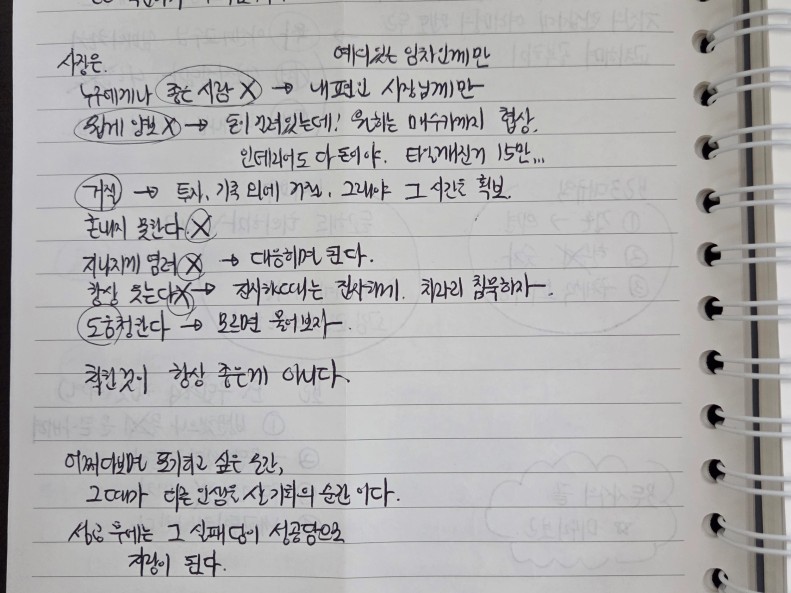 사장은. 예의있는 임차인께만
누구에게나 좋은 사람 X → 내편인 사장님께만
쉽게 양보 X → 돈이 걸려있는데! 원하는 매수가까지 협상.
인테리어도 다 돈이야. 타일깨진거 15만...
거절 → 투자, 가족 외에 거절. 그래야 그 시간을 확보.
혼내지 못한다 X
지나치게 염려 X → 대응하면 된다.
항상 웃는다 X → 진지할때는 진지하게. 차라리 침묵하자
도움청한다 → 모르면 물어보자
착한것이 항상 좋은게 아니다.
어쩌다보면 포기하고 싶은 순간,
그때가 다른 인생을 살 기회의 순간이다.
성공 후에는 그 실패담이 성공담으로
자랑이 된다.